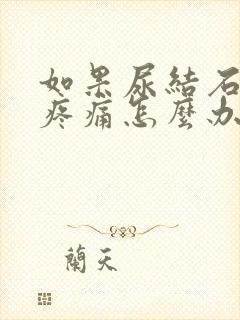 如果尿結石
疼痛怎麼办
蘭天